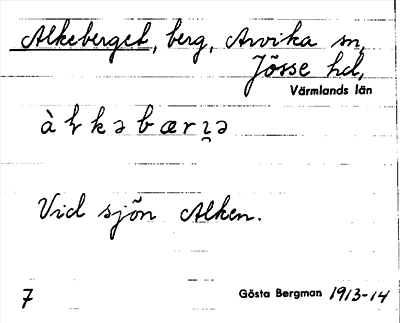 Alkeberget, berg, Arvika sn,
Jösse hd,
Värmlands län
Vid sjön Alken.
7
Gösta Bergman 1913-14